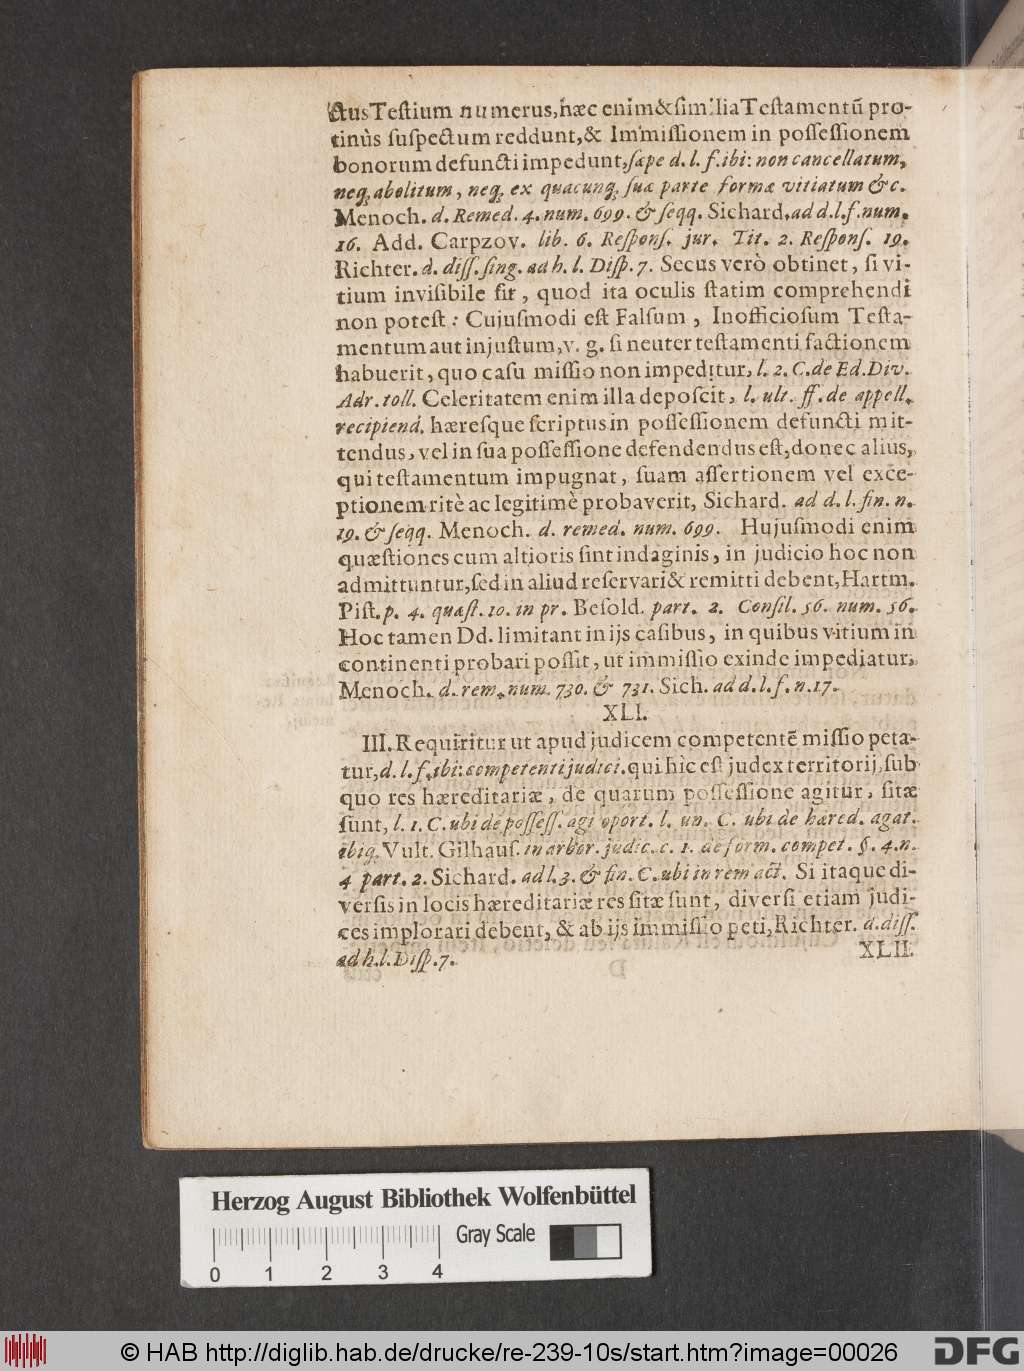 ctus Testium numerus, hæc enim & similia Testamentũ pro-
tinùs suspectum reddunt, & Immissionem in possessionem
bonorum defuncti impedunt, sæpe d. l. f. ibi: non cancellatum,
neq; abolitum, neq; ex quacunq; suæ parte formæ vitiatum &c.
Menoch. d. Remed. 4. num. 699. & seqq. Sichard. ad d. l. f. num.
16. Add. Carpzov. lib. 6. Respons. jur. Tit. 2. Respons. 19.
Richter. d. diss. sing. ad h. l. Disp. 7. Secus verò obtinet, si vi-
tium invisibile sit, quod ita oculis statim comprehendi
non potest: Cujusmodi est Falsum, Inofficiosum Testa-
mentum aut injustum, v. g. si neuter testamenti factionem
habuerit, quo casu missio non impeditur, l. 2. C. de Ed. Div.
Adr. toll. Celeritatem enim illa deposcit, l. ult. ff. de appell.
recipiend. hæresque scriptus in possessionem defuncti mit-
tendus, vel in sua possessione defendendus est, donec alius,
qui testamentum impugnat, suam assertionem vel exce-
ptionem ritè ac legitimè probaverit, Sichard. ad d. l. fin. n.
19. & seqq. Menoch. d. remed. num. 699. Hujusmodi enim
quæstiones cum altioris sint indaginis, in judicio hoc non
admittuntur, sed in aliud reservari & remitti debent, Hartm.
Pist. p. 4. quæst. 10. in pr. Besold. part. 2. Consil. 56. num. 56.
Hoc tamen Dd. limitant in ijs casibus, in quibus vitium in
continenti probari possit, ut immissio exinde impediatur,
Menoch. d. rem. num. 730. & 731. Sich. ad d. l. f. n. 17.
XLI.
III. Requiritur ut apud judicem competentẽ missio peta-
tur, d. l. f. ibi: competenti judici. qui hic est judex territorij, sub
quo res hæreditariæ, de quarum possessione agitur, sitæ
sunt, l. 1. C. ubi de possess. agi oport. l. un. C. ubi de hæred. agat.
ibiq. Vult. Gilhaus. in arbor. judic. c. 1. de form. compet. §. 4. n.
4 part. 2. Sichard. ad l. 3. & fin. C. ubi in rem act. Si itaque di-
versis in locis hæreditariæ res sitæ sunt, diversi etiam judi-
ces implorari debent, & ab ijs immissio peti, Richter. d. diss.
ad h. l. Disp. 7.
XLII.
Herzog August Bibliothek Wolfenbüttel
Gray Scale
0 1 2 3 4
© HAB http://diglib.hab.de/drucke/re-239-10s/start.htm?image=00026
DFG